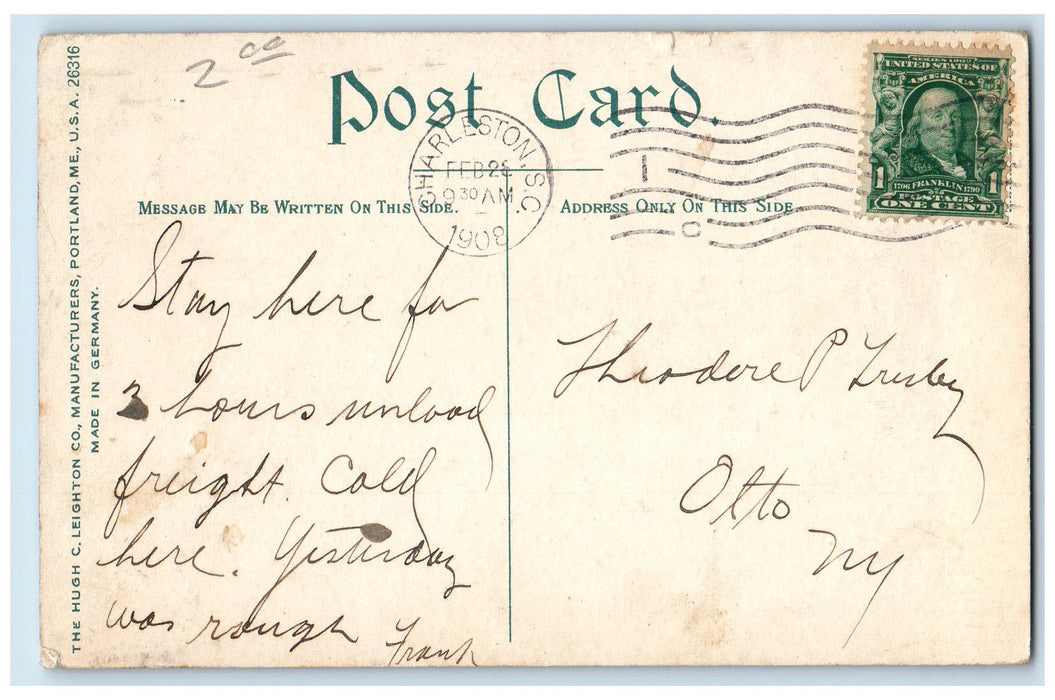 2 00
Post Card.
CHARLESTON, S.C.
FEB 28
9 30 AM
1908
1
C
SERIES 1902
UNITED STATES OF
AMERICA
1706 FRANKLIN 1790
1 POSTAGE 1
ONE CENT
MESSAGE MAY BE WRITTEN ON THIS SIDE.
ADDRESS ONLY ON THIS SIDE
THE HUGH C. LEIGHTON CO., MANUFACTURERS, PORTLAND, ME., U.S.A. 26316
MADE IN GERMANY.
Stay here for
3 hours unload
freight. Cold
here. Yesterday
was rough
Frank
Theodore P
Otto
NY